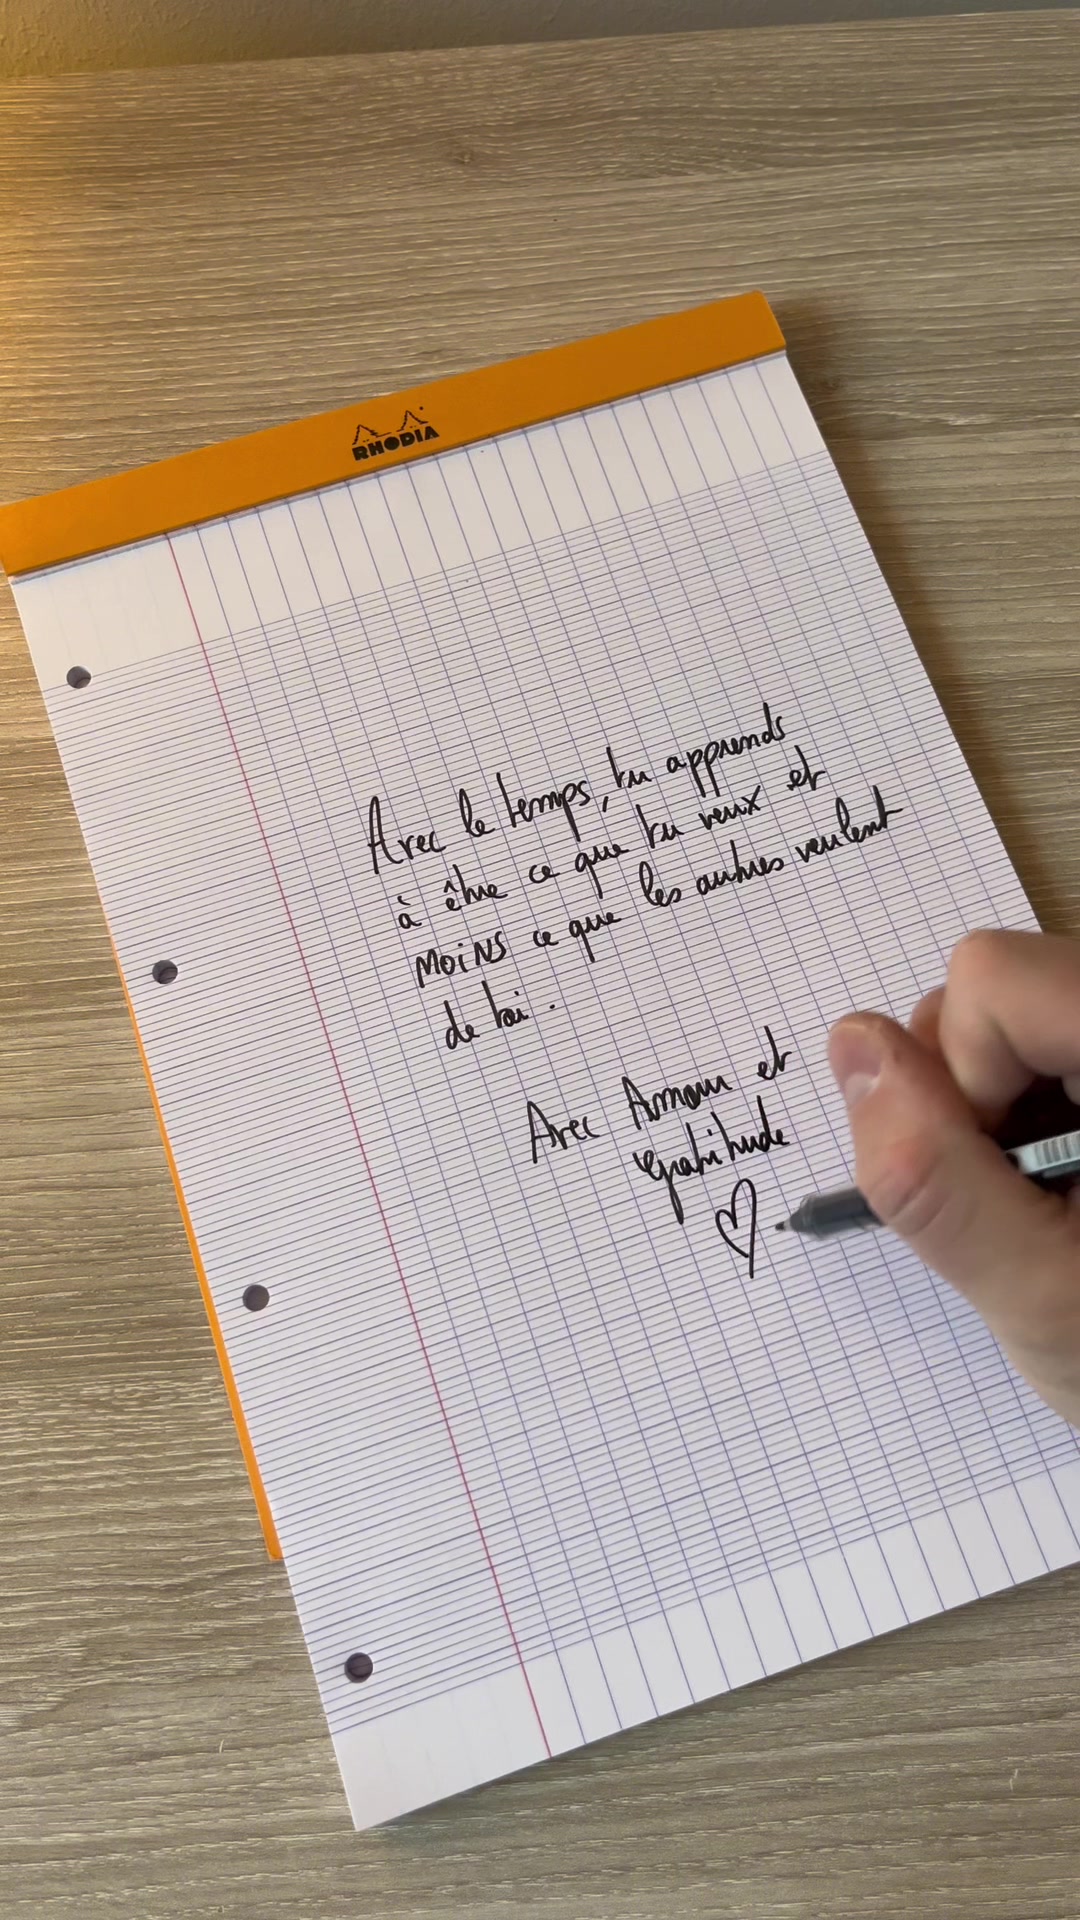 RHODIA
Avec le temps, tu apprends
à être ce que tu veux et
MOiNS ce que les autres veulent
de toi.
Avec Amour et
Gratitude